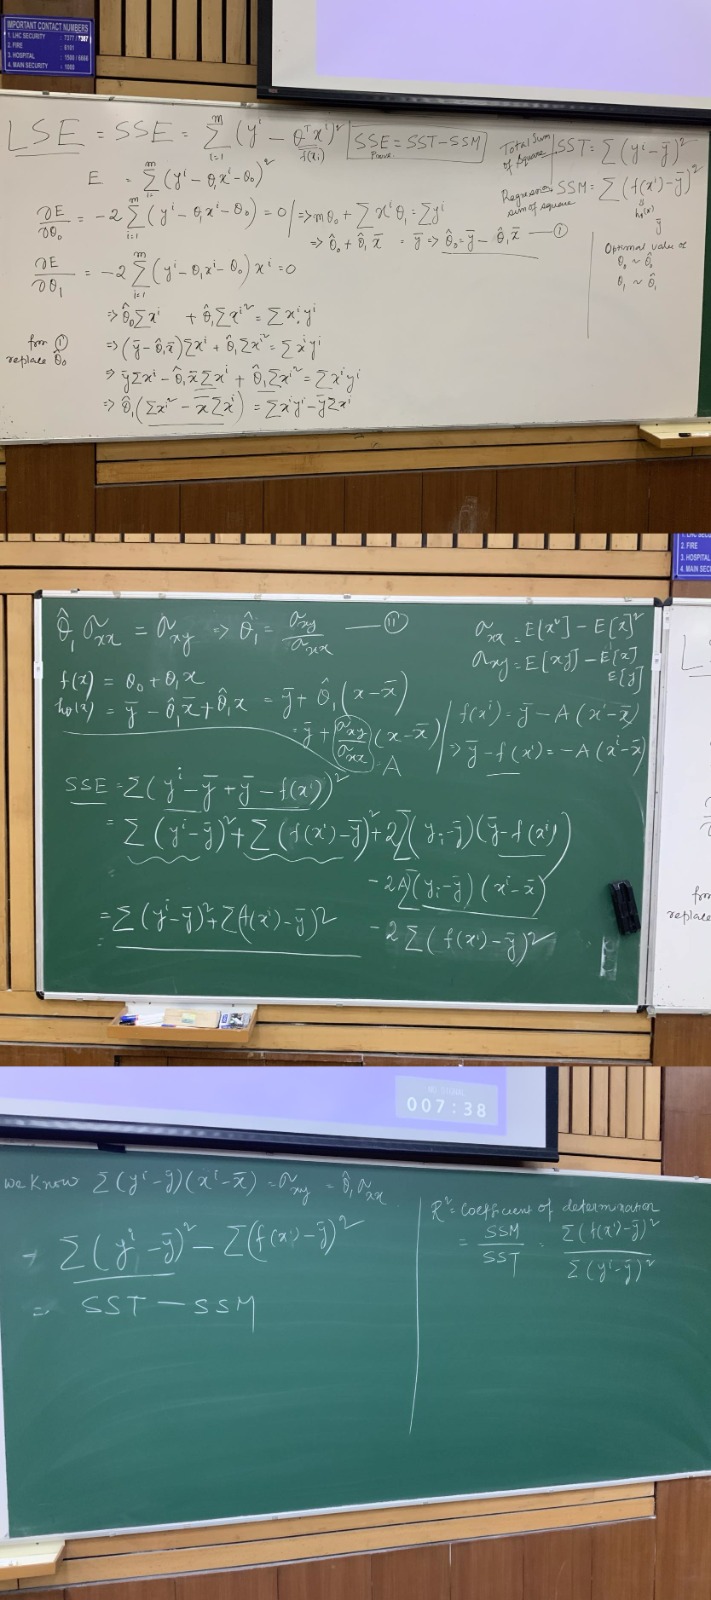 IMPORTANT CONTACT NUMBERS
1. LHC SECURITY : 7377 / 7387
2. FIRE : 6101
3. HOSPITAL : 1500 / 6666
4. MAIN SECURITY : 1000
LSE = SSE = Σ_{i=1}^{m} (y^i - θ^T x^i)^2
f(x_i)
SSE = SST - SSM
Prove.
Total Sum of Square SST = Σ(y^i - ȳ)^2
Regression sum of square SSM = Σ(f(x^i) - ȳ)^2
h_θ(x)
ȳ
E = Σ_{i=1}^{m} (y^i - θ_1 x^i - θ_0)^2
∂E/∂θ_0 = -2 Σ_{i=1}^{m} (y^i - θ_1 x^i - θ_0) = 0 / ⇒ mθ_0 + Σ x^i θ_1 = Σ y^i
⇒ θ̂_0 + θ̂_1 x̄ = ȳ ⇒ θ̂_0 = ȳ - θ̂_1 x̄ — (I)
Optimal value of
θ_0 ~ θ̂_0
θ_1 ~ θ̂_1
∂E/∂θ_1 = -2 Σ_{i=1}^{m} (y^i - θ_1 x^i - θ_0) x^i = 0
⇒ θ̂_0 Σx^i + θ̂_1 Σx^i² = Σ x^i y^i
from (I) replace θ̂_0
⇒ (ȳ - θ̂_1 x̄) Σx^i + θ̂_1 Σx^i² = Σ x^i y^i
⇒ ȳ Σx^i - θ̂_1 x̄ Σx^i + θ̂_1 Σx^i² = Σ x^i y^i
⇒ θ̂_1 (Σx^i² - x̄ Σx^i) = Σ x^i y^i - ȳ Σx^i
2. FIRE
3. HOSPITAL
θ̂_1 σ_xx = σ_xy ⇒ θ̂_1 = σ_xy / σ_xx — (II)
σ_xx = E[x²] - E[x]²
σ_xy = E[xy] - E[x] E[y]
f(x) = θ_0 + θ_1 x
h_θ(x) = ȳ - θ̂_1 x̄ + θ̂_1 x = ȳ + θ̂_1 (x - x̄)
= ȳ + σ_xy/σ_xx (x - x̄)
A
f(x^i) = ȳ - A(x^i - x̄)
⇒ ȳ - f(x^i) = -A(x^i - x̄)
SSE = Σ(y^i - ȳ + ȳ - f(x^i))^2
= Σ(y^i - ȳ)^2 + Σ(f(x^i) - ȳ)^2 + 2Σ(y_i - ȳ)(ȳ - f(x^i))
- 2AΣ(y_i - ȳ)(x^i - x̄)
= Σ(y^i - ȳ)^2 + Σ(f(x^i) - ȳ)^2
- 2Σ(f(x^i) - ȳ)^2
from
replace
NO SIGNAL
007:38
we know Σ(y^i - ȳ)(x^i - x̄) = σ_xy = θ̂_1 σ_xx
Σ(y^i - ȳ)^2 - Σ(f(x^i) - ȳ)^2
= SST - SSM
R² = Coefficient of determination
= SSM/SST = Σ(f(x^i) - ȳ)^2 / Σ(y^i - ȳ)^2